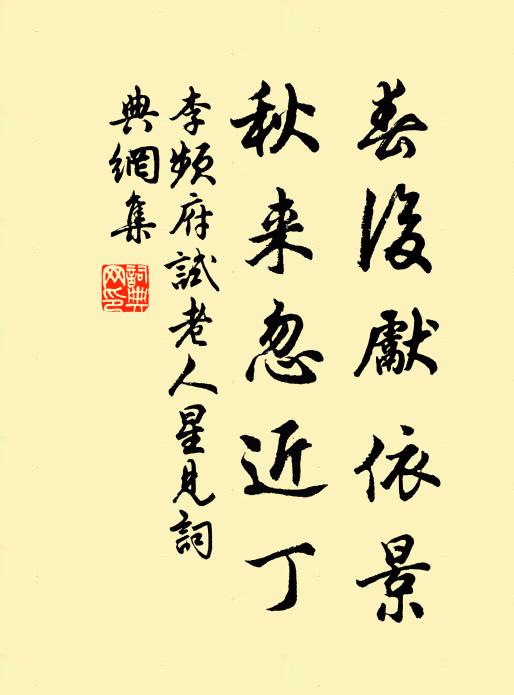 春後獻依景
秋来忽近丁
李頻府試老人星見詞
典網集
詞典
网印